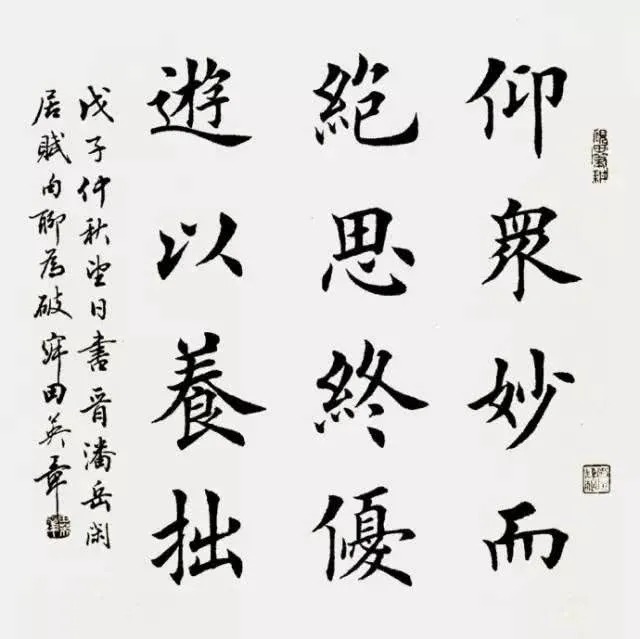 仰衆妙而
絶思終優
遊以養拙
戊子仲秋望日書晋潘岳闲
居賦句聊為破寂田英章